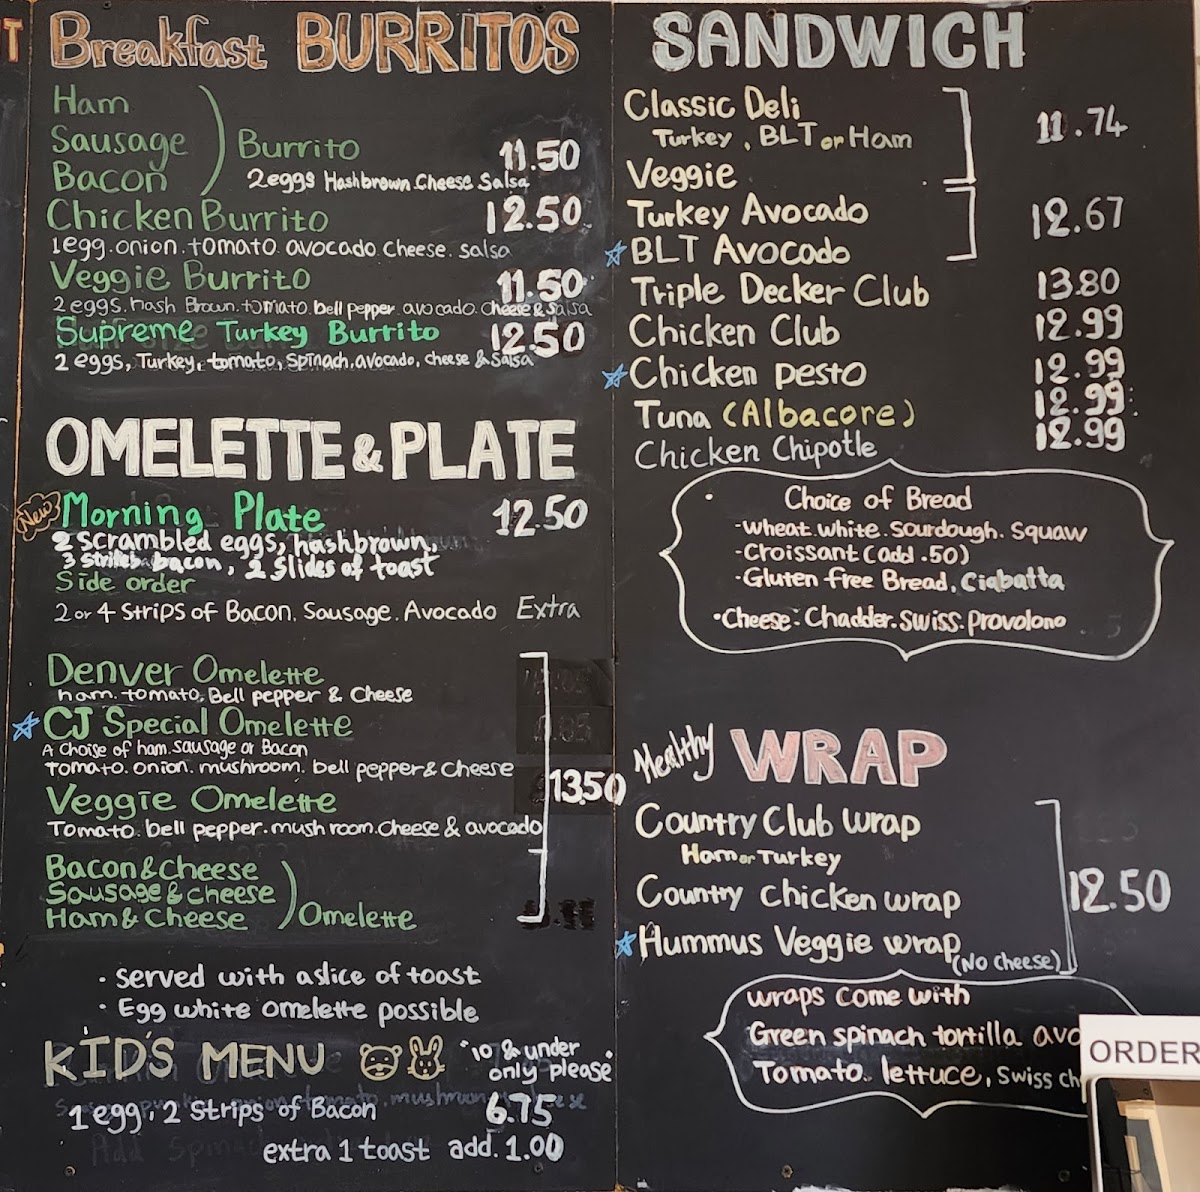 T
Breakfast BURRITOS
Ham
Sausage
Bacon
Burrito 11.50
2eggs Hashbrown Cheese Salsa
Chicken Burrito 12.50
1egg.onion.tomato avocado Cheese. salsa
Veggie Burrito 11.50
2eggs. Hash Brown. tomato bell pepper avocado Cheese & Salsa
Supreme Turkey Burrito 12.50
2 eggs, Turkey, tomato, Spinach, avocado, cheese & Salsa
OMELETTE & PLATE
New
Morning Plate 12.50
2 scrambled eggs, hashbrown,
3 strips bacon, 2 Slides of toast
Side order
2 or 4 strips of Bacon. Sausage. Avocado Extra
Denver Omelette
ham. tomato. Bell pepper & Cheese
CJ Special Omelette
A choise of ham. sausage or Bacon
Tomato. onion. mushroom. bell pepper & Cheese
13.50
Veggie Omelette
Tomato. bell pepper. mushroom. cheese & avocado
Bacon & Cheese
Sausage & cheese
Ham & Cheese
Omelette
· Served with a slice of toast
· Egg white omelette possible
KID'S MENU
"10 & under
only please"
1 egg, 2 strips of Bacon 6.75
extra 1 toast add. 1.00
SANDWICH
Classic Deli
Turkey, BLT or Ham
11.74
Veggie
Turkey Avocado
12.67
BLT Avocado
Triple Decker Club 13.80
Chicken Club 12.99
Chicken pesto 12.99
Tuna (Albacore) 12.99
Chicken Chipotle 12.99
· Choice of Bread
-Wheat. white. Sourdough. Squaw
-Croissant (add .50)
-Gluten free Bread, Ciabatta
·Cheese: Chadder. Swiss. Provolono
Healthy WRAP
Country Club wrap
Ham or Turkey
Country Chicken wrap
12.50
Hummus Veggie wrap
(No cheese)
wraps come with
Green spinach tortilla avo
Tomato.. lettuce, Swiss ch
ORDER